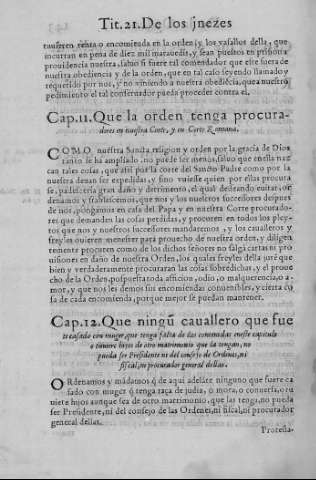 Tit. 21. De los jnezes
tuuieren renta o encomienda en la orden, y los vasallos della, que
incurran en pena de diez mil marauedis, y sean puestos en prision a
prouidencia nuestra, saluo si fuere tal comendador que este fuera de
nuestra obediencia y de la orden, que en tal caso seyendo llamado y
requerido por nos, y no viniendo a nuestra obediẽcia, quea nuestro
pedimiento el tal conseruador pueda proceder contra el.
Cap. 11. Que la orden tenga procura-
dores en nuestra Corte, y en Corte Romana.
COMO nuestra Santa religion y orden por la gracia de Dios
tanto se ha ampliado, no puede ser menos, saluo que en ella nazcan
can tales cosas, que assi por la corte del Santo Padre como por la
nuestra deuan ser expedidas, y sino vuiesse quien por ellas procura
se, padesceria gran daño y detrimento, el qual desseando euitar, or-
denamos y establescemos, que nos y los nuestros successores despues
de nos, pongamos en casa del Papa y en nuestra Corte procurado-
res que demanden las cosas perdidas, y procuren en todos los pley-
tos que nos y nuestros successores mandaremos, y los caualleros y
freyles quieren menester para prouecho de nuestra orden, y diligen
temente procuren como de los dichos señores no salgã cartas ni pro
uisiones en daño de nuestra Orden, los quales freyles della jurẽ que
bien y verdaderamente procuraran las cosas sobredichas, y el proue
cho de la Orden, pospuesta toda afficion, odio, o malquerencia, o a-
mor, y que nos les demos sus encomiendas conuenibles, y cierta co
sa de cada encomienda, porque mejor se puedan mantener.
Cap. 12. Que ningũ cauallero que fue
re casado con muger, que tenga falta de las contenidas en este capitulo
o tuuiere hijos de otro matrimonio que la tengan, no
pueda ser Presidente ni del consejo de Ordenes, ni
fiscal, ni procurador general dellas.
ORdenamos y mãdamos q̃ de aqui adelãte ninguno que fuere ca
sado con muger q̃ tenga raça de judia, o mora, o conuersa, o tu
uiere hijos aunque sea de otro matrimonio, que las tenga, no pueda
ser Presidente, ni del consejo de las Ordenes, ni fiscal, ni procurador
general dellas.